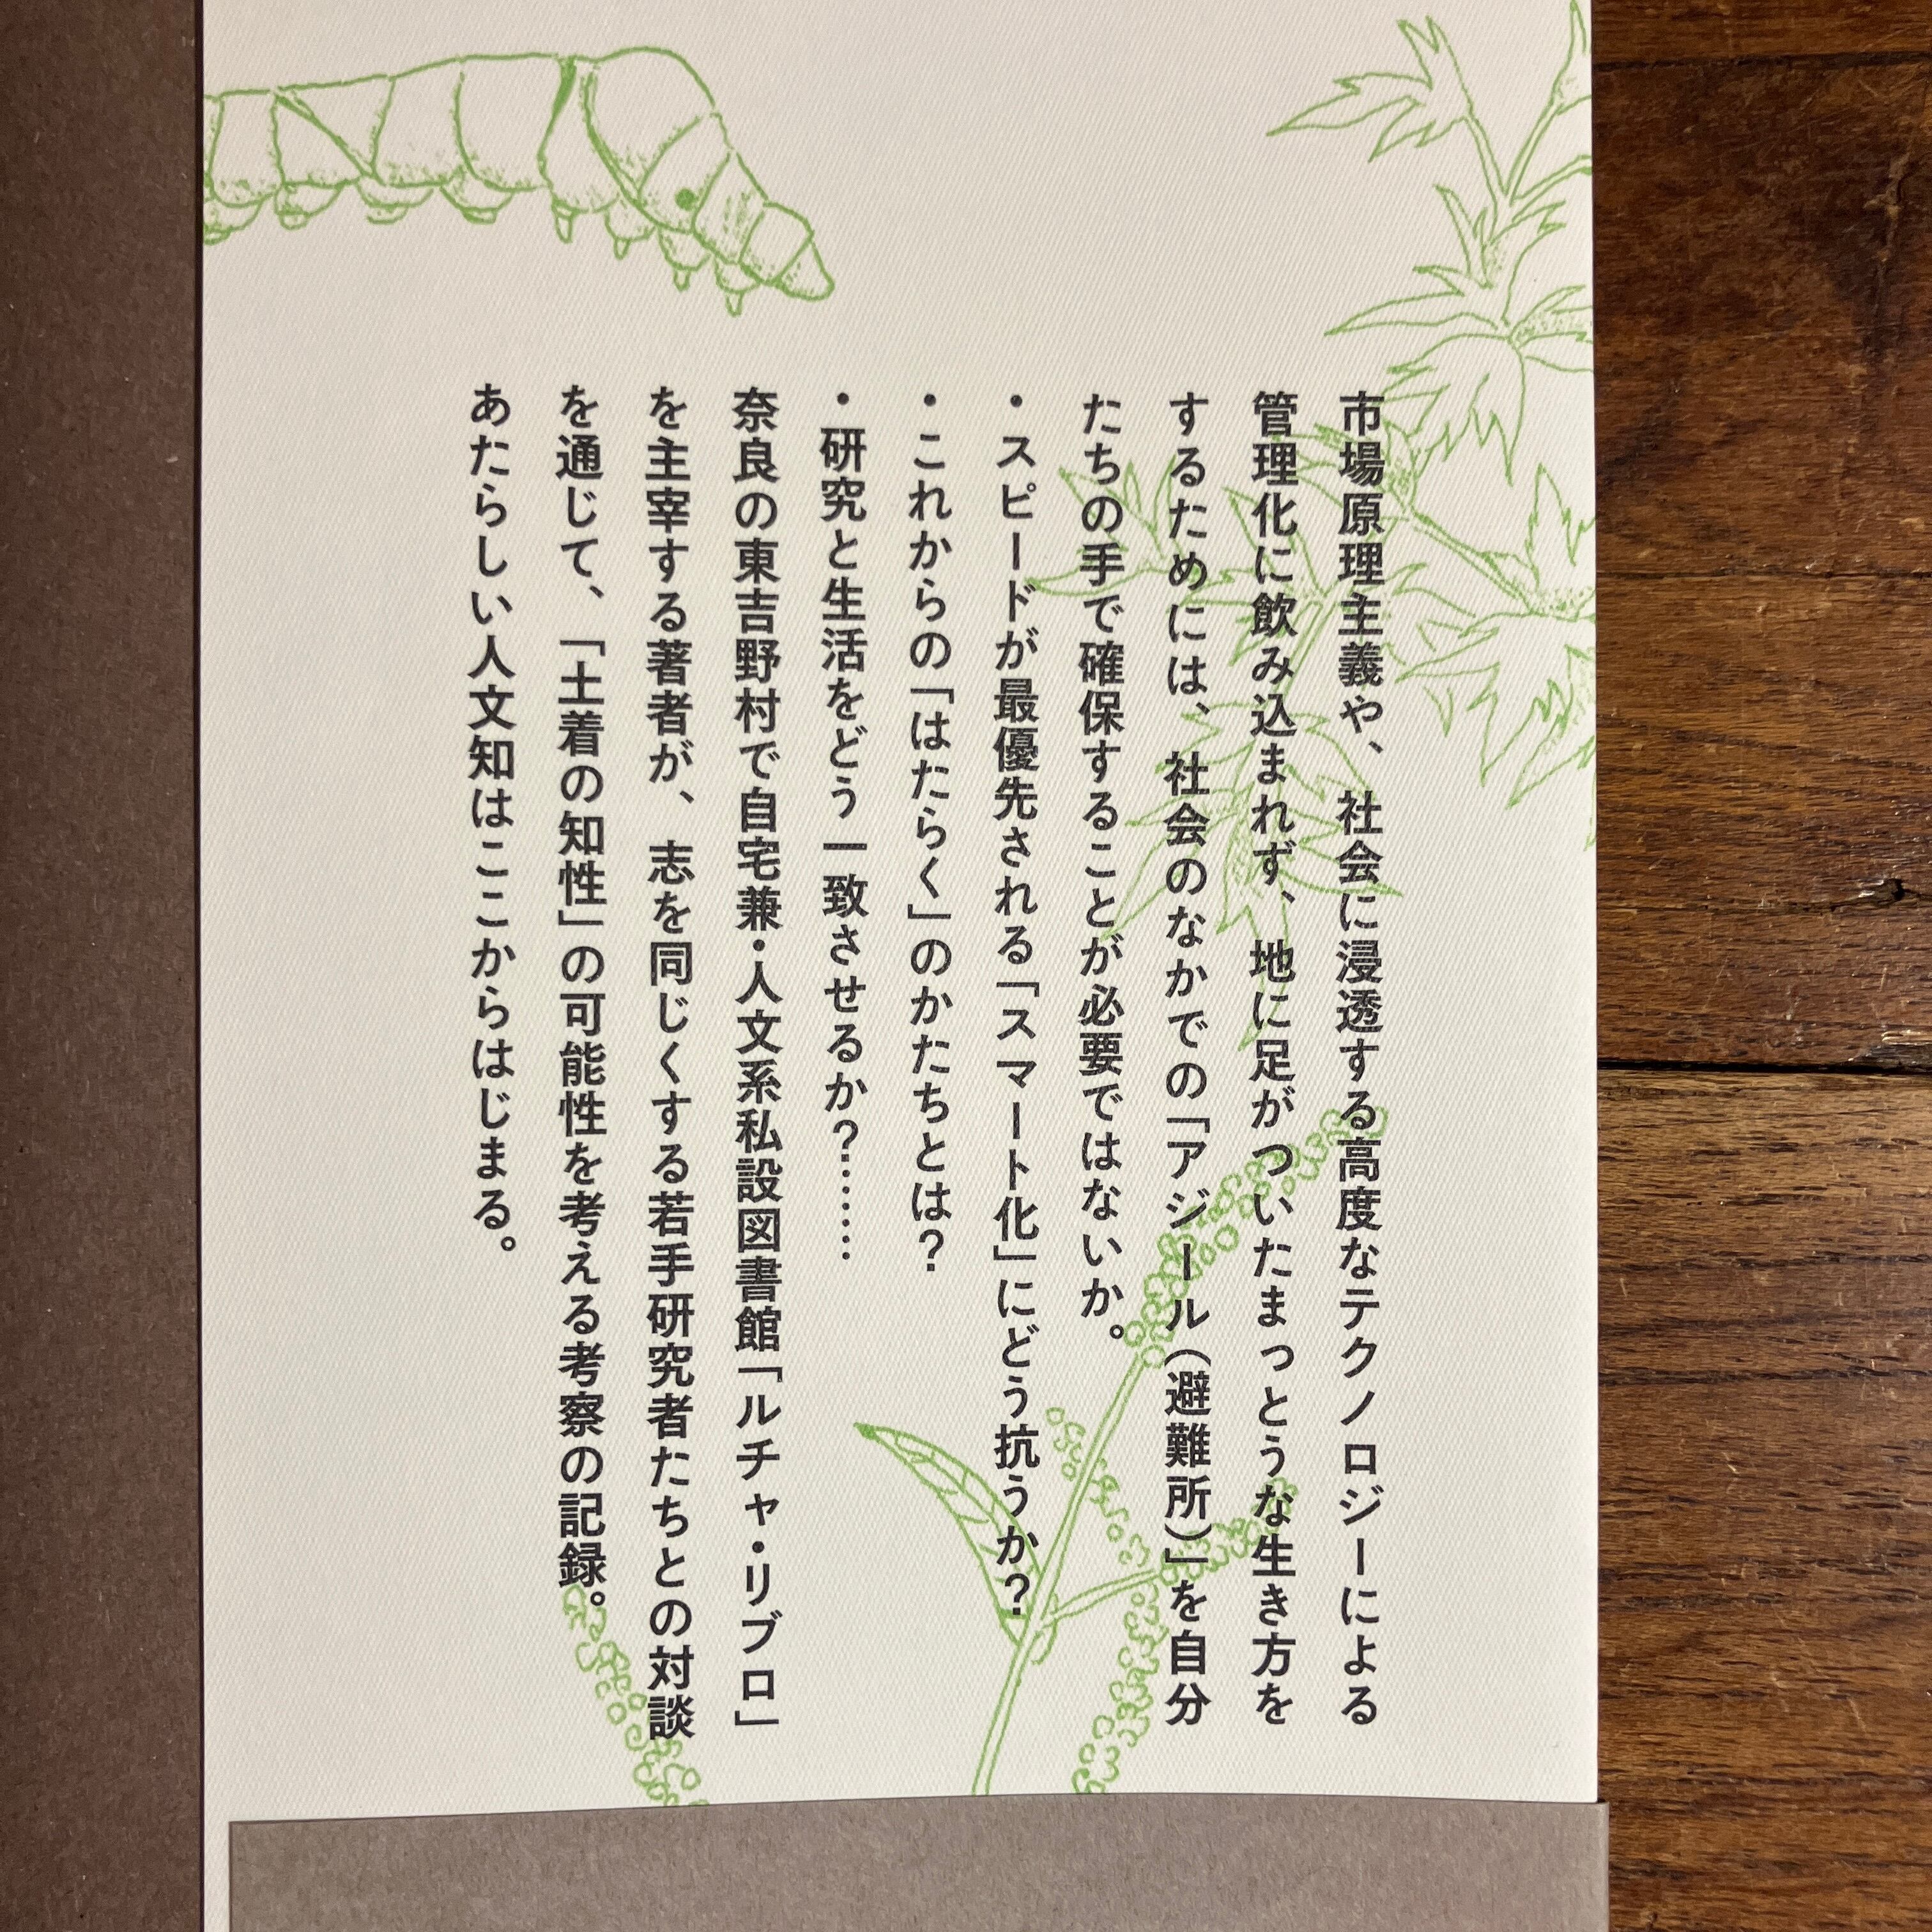 市場原理主義や、社会に浸透する高度なテクノロジーによる
管理化に飲み込まれず、地に足がついたまっとうな生き方を
するためには、社会のなかでの「アジール（避難所）」を自分
たちの手で確保することが必要ではないか。
・スピードが最優先される「スマート化」にどう抗うか？
・これからの「はたらく」のかたちとは？
・研究と生活をどう一致させるか？……
奈良の東吉野村で自宅兼・人文系私設図書館「ルチャ・リブロ」
を主宰する著者が、志を同じくする若手研究者たちとの対談
を通じて、「土着の知性」の可能性を考える考察の記録。
あたらしい人文知はここからはじまる。